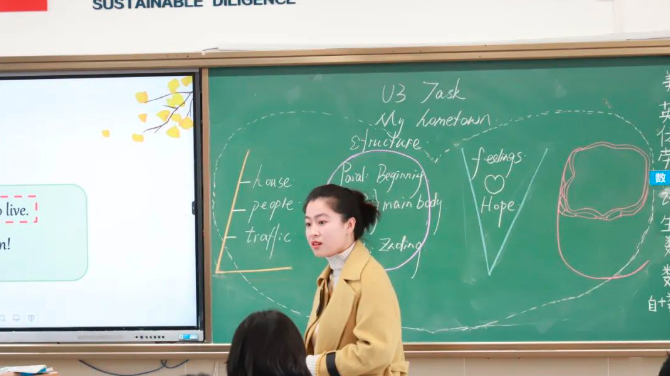 SUSTAINABLE DILIGENCE
U3 Task
My hometown
Structure
house
people
traffic
Para1: Beginning
main body
Ending
feelings
Hope
live.
数
自+